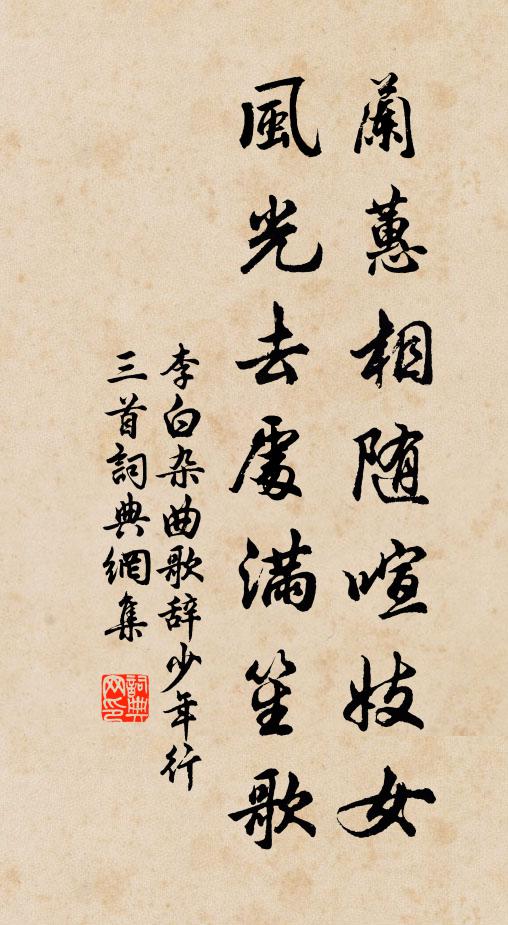 蘭蕙相随喧妓女
風光去處滿笙歌
李白杂曲歌辞少年行
三首詞典網集
詞典
网印